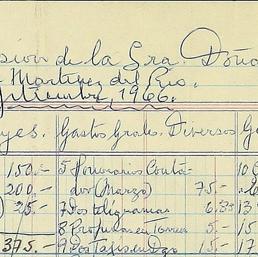 sión de la Sra. Doña
Martínez del Río.
Septiembre, 1966.
yes. Gastos Grales. Diversos G
150.- 5 Honorarios Conta- 10
200.- dor (Marzo) 75.-
25.- 7 Dos telegramas 6.35 13
8 Propinas en Correo 5.- 15
375.- 9 Dos Taxis en Dgo 15.- 17